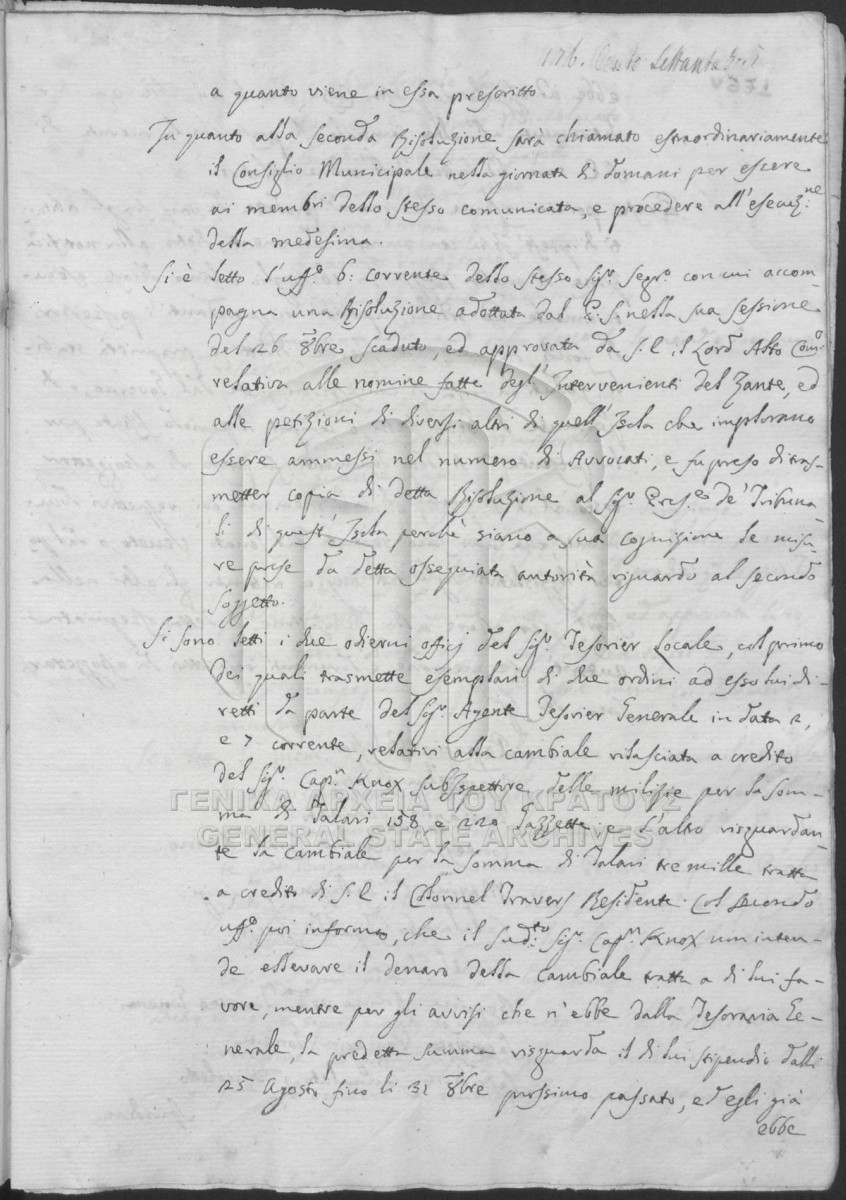 176. Cento Settanta Sei
a quanto viene in essa prescritto.
In quanto alla seconda Risoluzione sarà chiamato estraordinariamente
il Consiglio Municipale nella giornata di domani per essere
ai membri dello stesso comunicata, e procedere all'esecuz:ne
della medesima.
Si è letto l'uff.o 6: corrente dello stesso Sig.r Segr.o con cui accom-
pagna una Risoluzione adottata dal P. S. nella sua sessione
del 26 8bre scaduto, ed approvata da S. E. il Lord Alto Com.o
relativa alle nomine fatte degl'Intervenienti del Zante, ed
alle petizioni di diversi altri di quell'Isola che implorano
essere ammessi nel numero di Avvocati, e fu preso di tras-
metter copia di detta Risoluzione al Sig.r Pres.e de' Tribuna-
li di quest'Isola perchè siano a sua cognizione le misu-
re prese da detta ossequiata autorità riguardo al secondo
soggetto.
Si sono letti i due odierni officj del Sig.r Tesorier Locale, col primo
dei quali trasmette esemplari di due ordini ad esso lui di-
retti da parte del Sig.r Agente Tesorier Generale in data 2,
e 7 corrente, relativi alla cambiale rilasciata a credito
del Sig.r Cap.n Knox subIspettore delle milizie per la som-
ma di Talari 158 e 220 Gazzette e l'altro risguardan-
te la cambiale per la somma di Talari tre mille tratta
a credito di S. E. il Colonnel Travers Residente. Col secondo
uff.o poi informa, che il sud.to Sig.r Cap.n Knox non inten-
de ellevare il denaro della cambiale tratta a di lui fa-
vore, mentre per gli avvisi che n'ebbe dalla Tesoraria Ge-
nerale, la predetta summa risguarda il di lui stipendio dalli
25 Agosto fino li 31 8bre prossimo passato, ed egli già
ebbe
ΓΕΝΙΚΑ ΑΡΧΕΙΑ ΤΟΥ ΚΡΑΤΟΥΣ
GENERAL STATE ARCHIVES